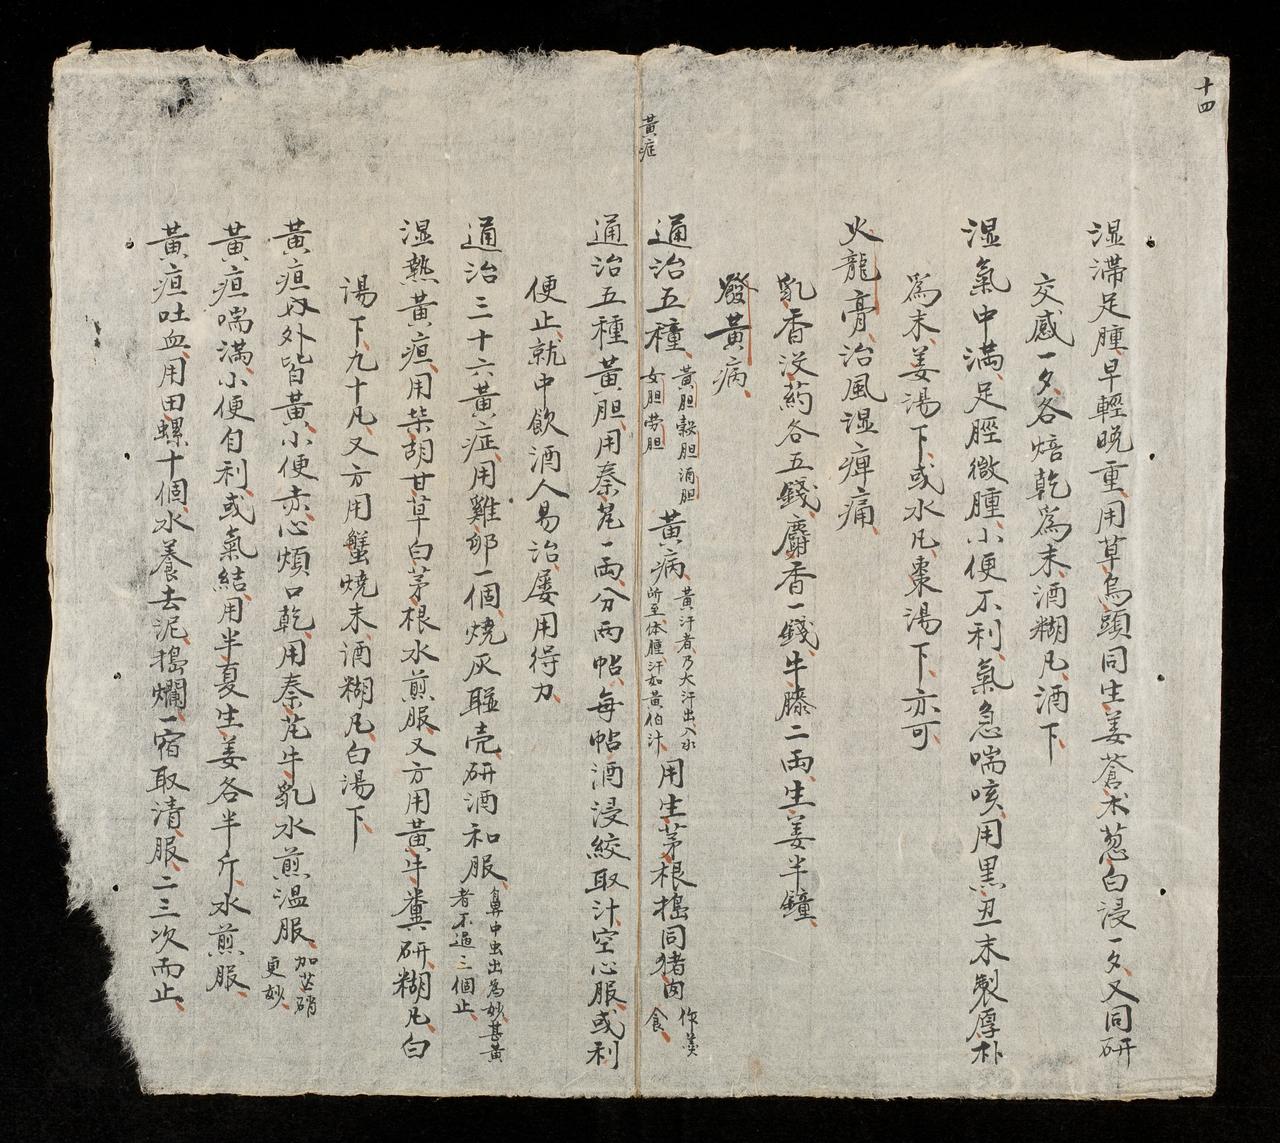 十四
湿滯足腫早輕晚重用草烏頭同生姜蒼朮葱白浸一夕又同研
交感一夕各焙乾為末酒糊凡酒下
湿氣中滿足脛微腫小便不利氣急喘咳用黑丑末製厚朴
為末姜湯下或水凡棗湯下亦可
火龍膏治風湿痺痛
乳香沒葯各五錢麝香一錢牛膝二両生姜半鐘
發黃病
黃疸
通治五種
黃胆穀胆酒胆
女胆劳胆
黃病
黃汗者乃大汗出入水
所至体腫汗如黃伯汁
用生茅根搗同猪肉
作羹
食
通治五種黃胆用秦芃一両分両帖每帖酒浸絞取汁空心服或利
便止就中飲酒人易治屡用得力
通治三十六黃症用雞卵一個燒灰聯壳研酒和服
鼻中虫出為妙甚黃
者不過三個止
湿熱黃疸用柴胡甘草白茅根水煎服又方用黃牛糞研糊凡白
湯下九十凡又方用蟹燒末酒糊凡白湯下
黃疸內外皆黃小便赤心煩口乾用秦芃牛乳水煎温服
加芒硝
更妙
黃疸喘滿小便自利或氣結用半夏生姜各半斤水煎服
黃疸吐血用田螺十個水養去泥搗爛一宿取清服二三次而止